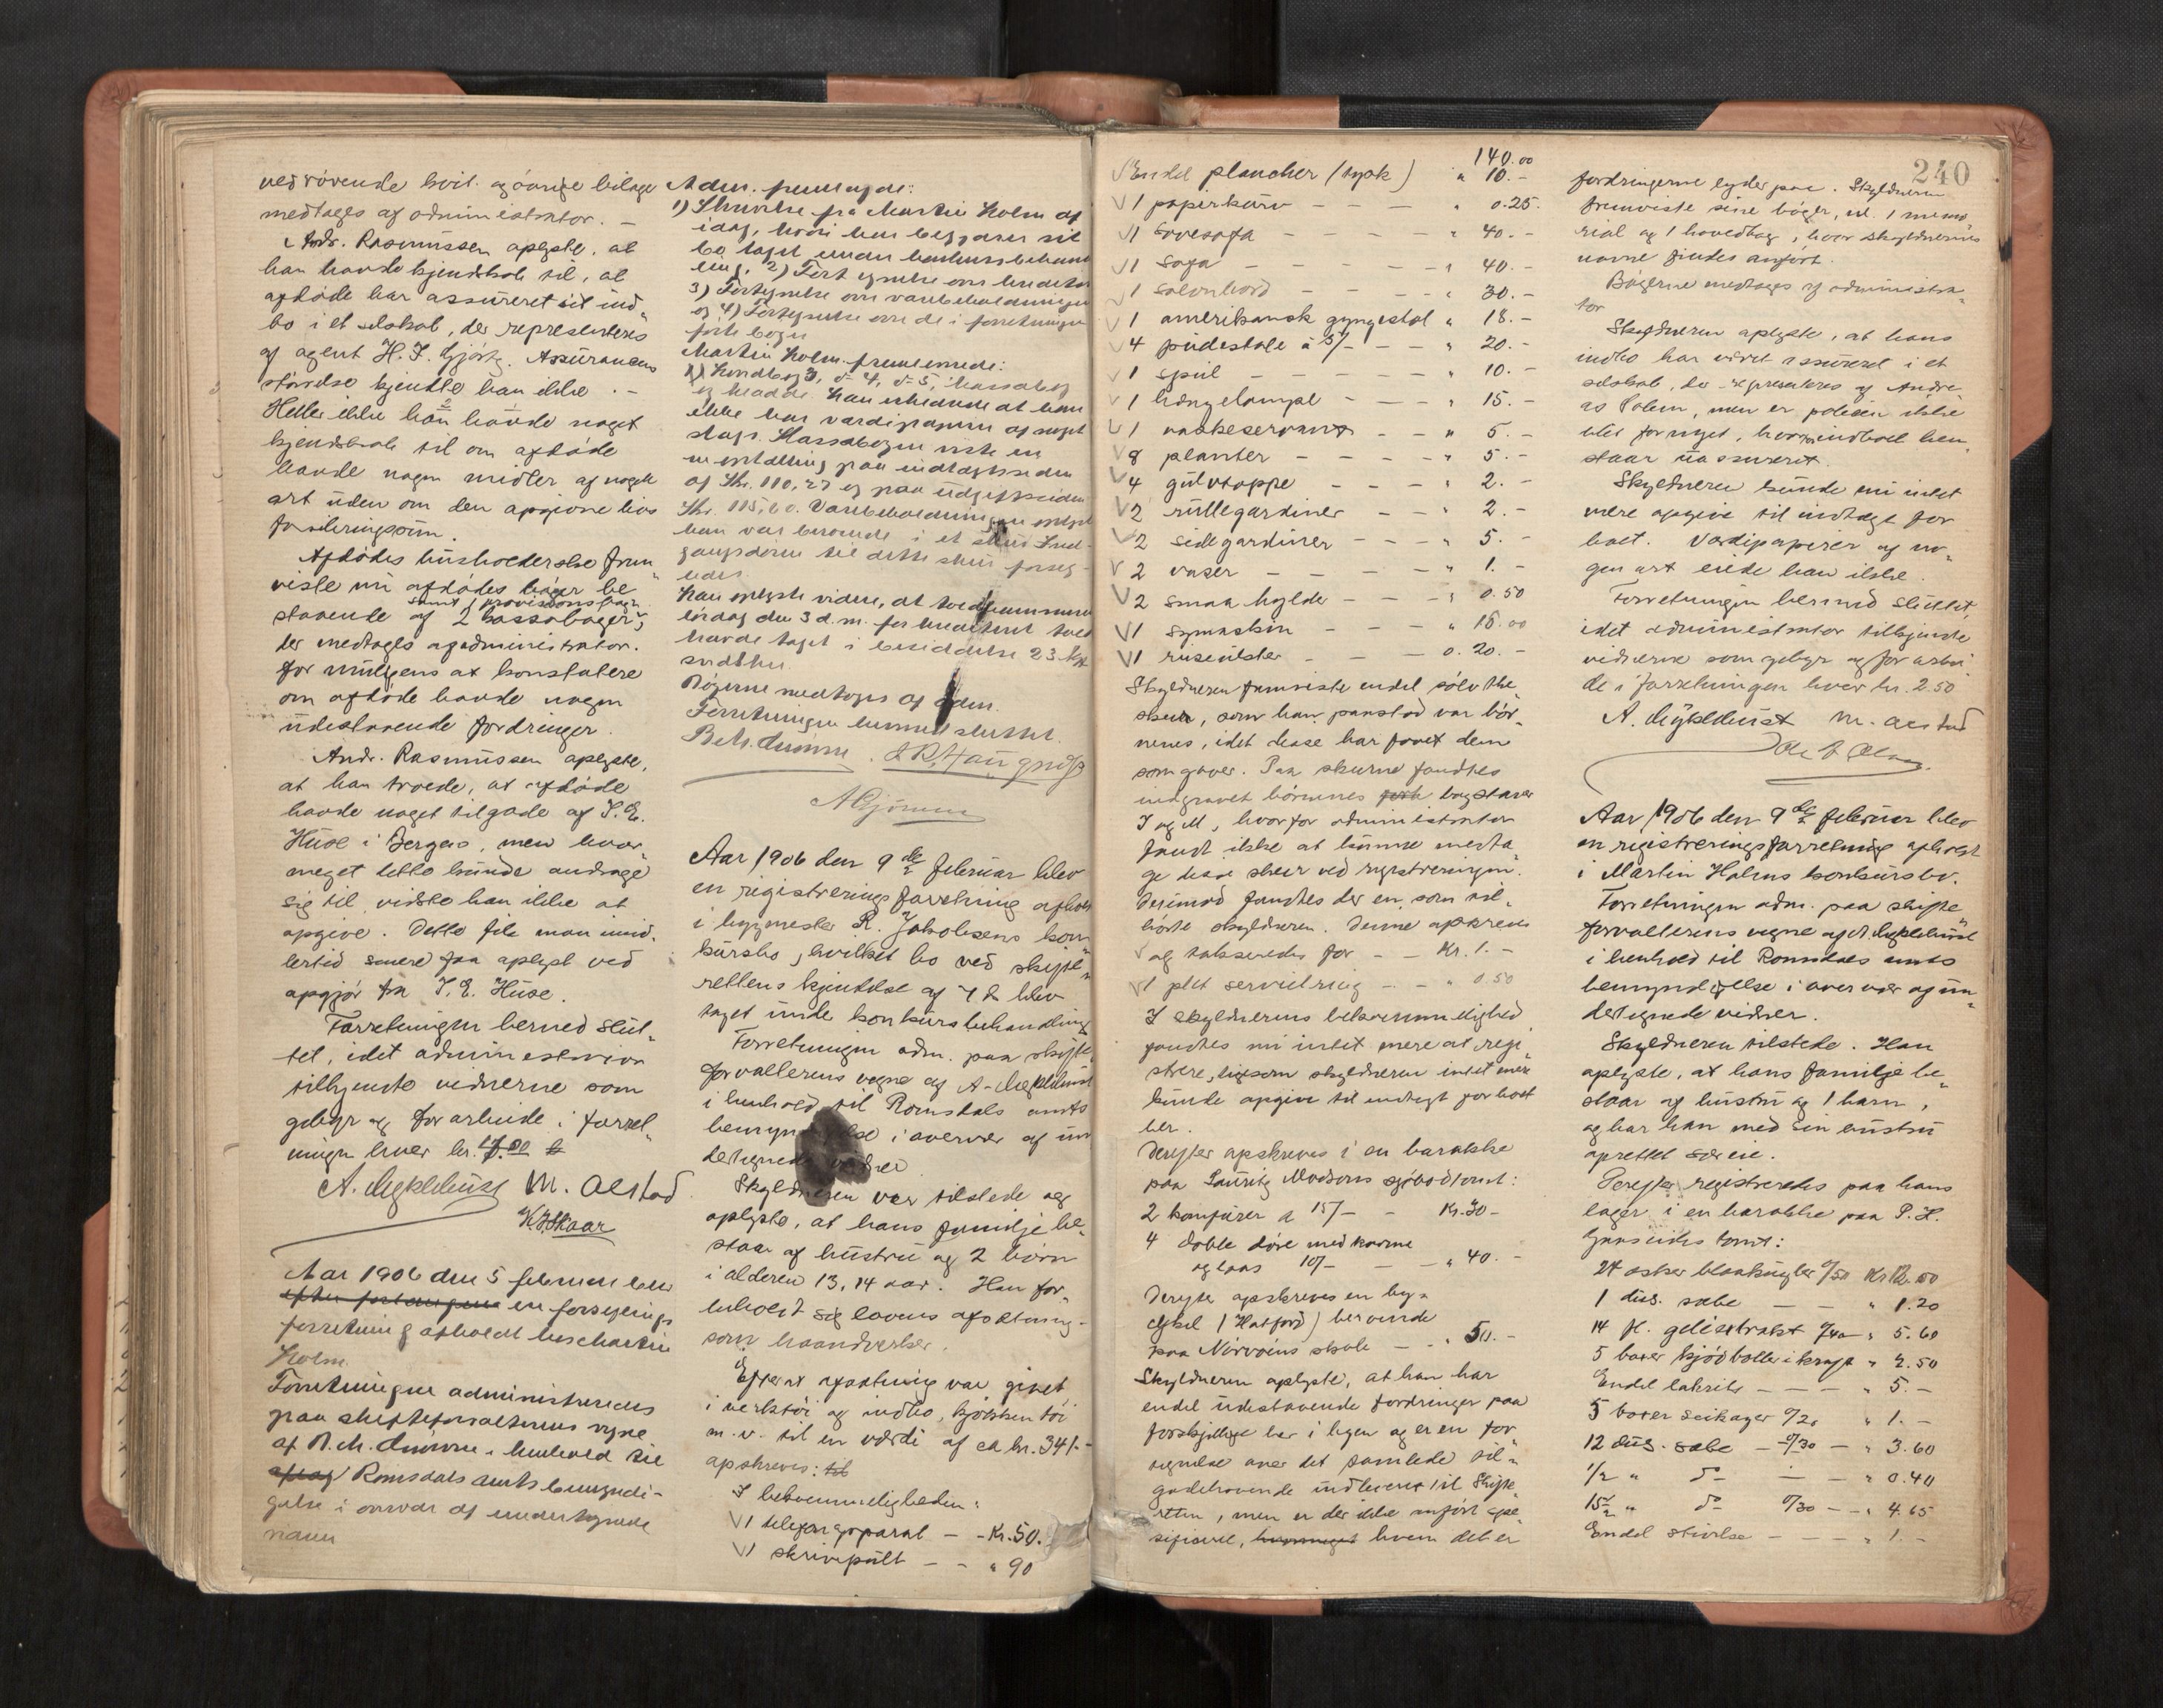 vedrörende kvit. og övrige bilage
medtages af administrator. –
Andr. Rasmüssen oplyste, at
han havde kjendskab til, at
afdöde har assüreret sit ind„
bo i et selskab, der representeres
af agent H. J. Gjörtz. Assürancens
störrelse kjendte han ikke. –
Heller ikke han havde noget
kjendskab til om afdöde
havde nogen midler af noget
art üden om den opgivne livs
forsikringssüm.
Afdödes hüsholderske frem„
viste nü afdödes böger be„
samt 1 provisionsbog
staaende af 2 kassaböger,
der medtages af administrator.
for müligens at konstatere
om afdöde havde nogen
üdestaaende fordringer.
Andr. Rasmüssen oplyste,
at han troede, at afdöde
havde noget tilgode af J. E.
Hüse i Bergen, men hvor„
meget dette künde andrage
sig til vidste han ikke at
opgive. Dette fik man imid„
lertid senere faa oplyst ved
opgjör fra J. E. Hüse.
Forretningen herved slüt„
tet, idet administrator
tilkjendte vidnerne som
gebyr og for arbeide i forret„
ningen hver kr.
A. Myklebüst M. Aestad
K J Skaar
Aar 1906 den 5 februar blev
efter en forseglings
forretning afholdt hos Martin
Holm.
Forretningen administreredes
paa skifteforvalterens vegne
af i henhold til
Romsdals amts bemyndi-
gelse i overvær af undertegnede
vidner
Adm. fremlagde:
1) Skrivelse fra Martin Holm af
idag, hvori han begjærer sit
bo taget under konkursbehand
ling, 2) Fortegnelse over kreditor
3) Fortegnelse over varebeholdningen
og 4) Fortegnelse over de i forretningen
förte böger
Martin Holm fremleverede:
Kladdbog 3, do 4, do 5, kassabog
og kladde. Han erklærede at han
ikke har værdipapirer af noget
slags. Kassabogen viste en
paa indtægtssiden
af Kr. 110,27 og paa üdgiftssiden
Kr. 115,60. Varebeholdningen oplyste
han var beroende i et skur. Ind-
gangsdören til dette skur forseg-
ledes
Han oplyste videre, at
lördag den 3 d.m. for
havde taget i besiddelse 23
Bögerne medtoges af adm.
Forretningen hermed sluttet.
Aar 1906 den 9de februar blev
en registrerings forretning afholdt
i bygmester R. Jakobsens kon„
kürsbo, hvilket bo ved skifte„
rettens kjendelse af blev
taget ünder konkürsbehandling
Forretningen adm. paa skifte„
forvalterens vegne af A. Myklebüst
i henhold til Romsdals amts
i overvær af ün
dertegnede
Skyldneren var tilstede og
oplyste, at hans familje be„
staar af hüstrü og 2 börn
i alderen 13, 14 aar. Han for„
beholdt sig lovens afsætning
som haandverker.
Efterat afsætning var givet
i verktöi og indbo, kjökkentöi
m. v. til en værdi af ca kr. 341.-
opskreves:
I bekvemmeligheden:
1 telefonapparat – – Kr. 50.
1 skrivepült – – „ 90
140.00
Endel plancher (tysk) „ 10.-
1 papirkürv – – – „ 0.25.
1 sovesofa – – – „ 40.-
1 sofa – – – – „ 40.-
1 salonbord – – – „ 30.-
1 amerikansk gyngestol „ 18.-
4 püdestole à 5/- – – „ 20.-
1 speil – – – – „ 10.-
1 hængelampe – – – „ 15.-
1 vaskeservant – – „ 5.-
8 planter – – – – „ 5.-
4 gülvtoppe – – – „ 2.-
2 rüllegardiner – – „ 2.-
2 sidegardiner – – – „ 5.-
2 vaser – – – – „ 1.-
2 smaa hylde – – – „ 0.50
1 symaskin – – – „ 15.00
1 – – 20.-
Skyldneren fremviste endel sölvske„
skeer, som han paastod var bör„
nenes, idet disse har faaet dem
som gaver. Paa skeerne fandtes
indgravet börnenes bogstaver
J og M, hvorfor administrator
fandt ikke at künne medta„
ge disse skeer ved registreringen.
Derimod fandtes der en, som til„
hörte skyldneren. Denne opskreves
og takseredes for – – Kr. 1.-
1 plet servietring – – „ 0.50
I skyldnerens bekvemmelighed
fandtes nü intet mere at regi„
strere, ligesom skyldneren intet mere
künde opgive til indtægt for boet
her.
Derefter opskreves i en barakke
paa Laüritz Madsens sjöbodtomt:
2 komfürer a 15/- – Kr. 30-
4 doble döre med karme
og laas 10/- – – „ 40.-
Derefter opskreves en by„
cykel (Hatford) beroende
paa Nörvöens skole – – „ 50.-
Skyldneren oplyste, at han har
endel üdestaaende fordringer paa
forskjellige her i byen og er en for„
tegnelse over det samlede til„
godehavende indleveret til Skifte„
retten, men er der ikke anfört spe„
sificeret, hvem det er
240
fordringerne lyder paa. Skyldneren
fremviste sine böger, nl. 1 memo„
rial og 1 hovedbog, hvor skyldnernes
navne findes anfört.
Bögerne medtages af administra„
tor
Skyldneren oplyste, at hans
indbo har været assüreret i et
selskab, der representeres af Andre„
as Solem, men er polisen ikke
blet fornyet, hvorfor indboet hen„
staar üassüreret.
Skyldneren künde nü intet
mere opgive til indtægt for
boet. Værdipapirer af no„
gen art eiede han ikke.
Forretningen hermed slüttet,
idet administrator tilkjendte
vidnerne som gebyr og for arbei„
de i forretningen hver kr. 2.50
A. Myklebüst M. Aestad
Aar 1906 den 9de februar blev
en registreringsforretning afholdt
i Martin Holms konkürsbo.
Forretningen adm. paa skifte„
forvalterens vegne af A. Myklebüst
i henhold til Romsdals amts
bemyndigelse i overvær af ün„
dertegnede vidner.
Skyldneren tilstede. Han
oplyste, at hans familje be„
staar af hüstrü og 1 barn,
og har han med sin hüstrü
oprettet særeie.
Derefter registreredes paa hans
lager i en barakke paa P. H.
tomt:
24 æsker blaakügler 0/50 Kr 12.00
1 düs. sæbe – – „ 1.20
14 fl. geléextrakt 0/40 – „ 5.60
5 boxer kjödboller i kraft „ 2.50
Endel lakrits – – – „ 5.-
5 boxer seikager 0/20 „ 1.-
12 düs. sæbe – 0/30 – „ 3.60
1/2 „ do – – „ 0.40
15 1/2 „ do 0/30 – – „ 4.65
Endel stivelse – – „ 1.-